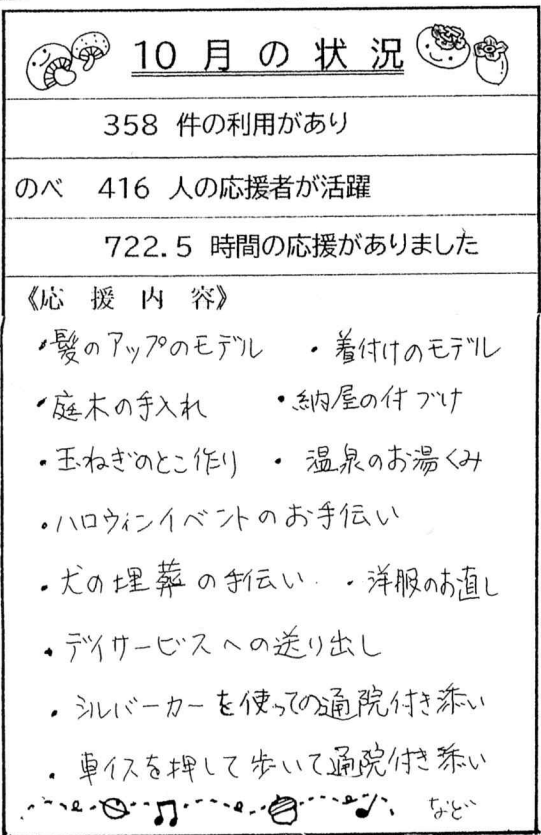 10月の状況
358 件の利用があり
のべ 416 人の応援者が活躍
722.5 時間の応援がありました
《応援内容》
・髪のアップのモデル ・着付けのモデル
・庭木の手入れ ・納屋の付づけ
・玉ねぎのとこ作り ・温泉のお湯くみ
・ハロウィンイベントのお手伝い
・犬の埋葬の手伝い ・洋服のお直し
・デイサービスへの送り出し
・シルバーカーを使っての通院付き添い
・車イスを押して歩いて通院付き添い
など